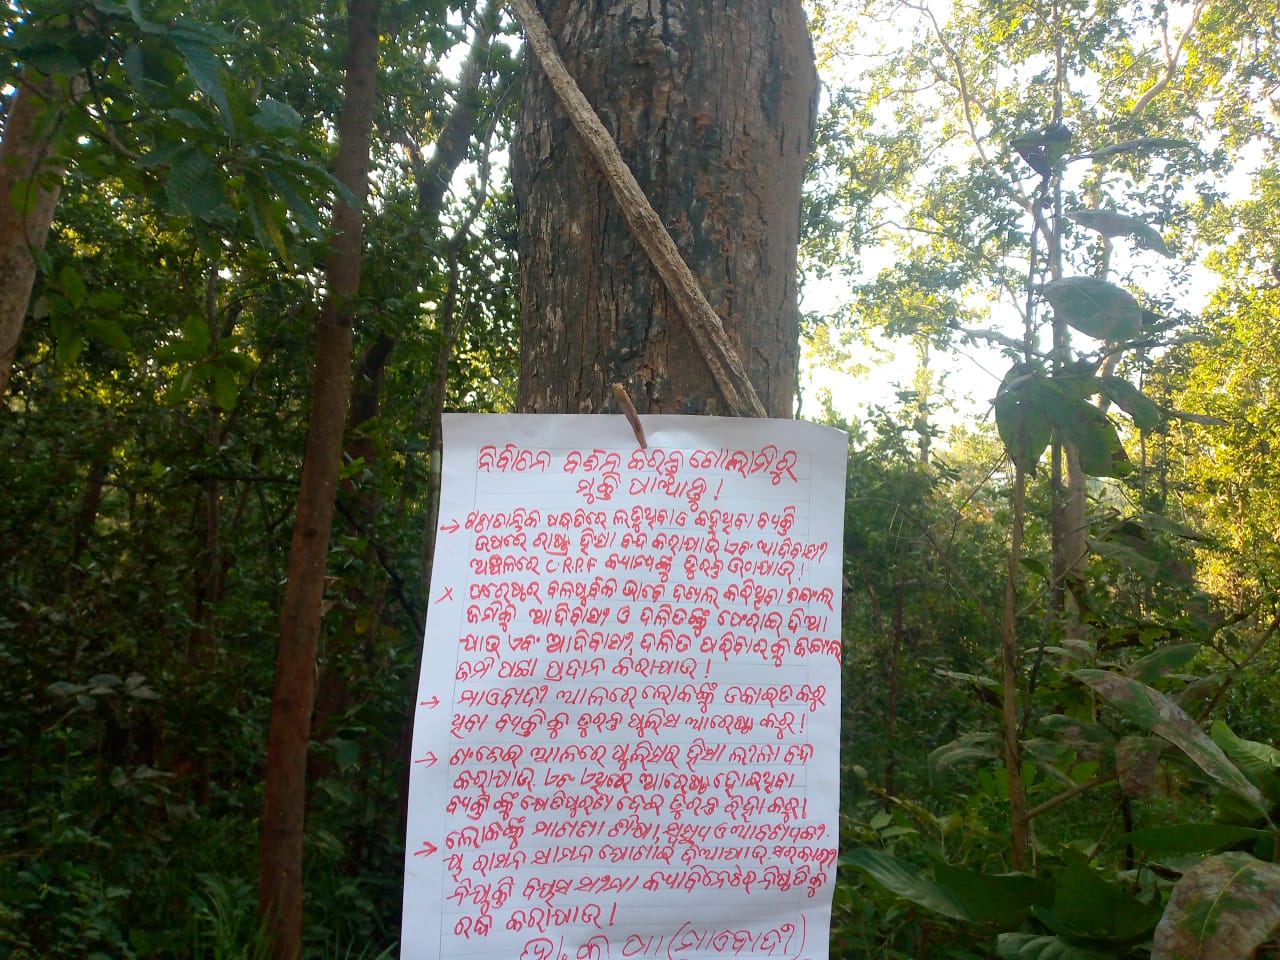 ନିର୍ବାଚନ ବର୍ଜନ କରନ୍ତୁ ଗୋଲାମୀରୁ
ମୁକ୍ତି ପାଆନ୍ତୁ!
→ ଗଣତାନ୍ତ୍ରିକ ପଦ୍ଧତିରେ ଲଢୁଥିବା ଓ କହୁଥିବା ବ୍ୟକ୍ତି
ଉପରେ ରାଷ୍ଟ୍ର ହିଂସା ବନ୍ଦ କରାଯାଉ ଏବଂ ଆଦିବାସୀ
ଅଞ୍ଚଳରେ C.R.P.F କ୍ୟାମ୍ପକୁ ତୁରନ୍ତ ଉଠାଯାଉ!
x ବଳପୂର୍ବକ ଭାବେ ଦଖଲ କରିଥିବା ଜଙ୍ଗଲ
ଜମିକୁ ଆଦିବାସୀ ଓ ଦଳିତଙ୍କୁ ଫେରାଇ ଦିଆ
ଯାଉ ଏବଂ ଆଦିବାସୀ, ଦଳିତ ପରିବାରକୁ ଜଙ୍ଗଲ
ଜମି ପଟ୍ଟା ପ୍ରଦାନ କରାଯାଉ!
→ ମାଓବାଦୀ ଆଳରେ ଲୋକଙ୍କୁ କରୁ
ଥିବା ବ୍ୟକ୍ତିକୁ ତୁରନ୍ତ ପୁଲିସ ଆରେଷ୍ଟ କରୁ!
→ ଆଳରେ ପୁଲିସର ହିଂସା ଲୀଳା ବନ୍ଦ
କରାଯାଉ ଏବଂ ଏଥିରେ ଆରେଷ୍ଟ ହୋଇଥିବା
ବ୍ୟକ୍ତିଙ୍କୁ କ୍ଷତିପୂରଣ ଦେଇ ତୁରନ୍ତ ରିହା କରୁ!
→ ଲୋକଙ୍କୁ ମାଗଣା ଶିକ୍ଷା,
ରାସନ ସାମନ ଯୋଗାଇ ଦିଆଯାଉ ସରକାରୀ
ନିଯୁକ୍ତି ବୟସ ସୀମା କ୍ୟାବିନେଟରେ ନିଷ୍ପତ୍ତିକୁ
ରଦ୍ଦ କରାଯାଉ!
ଭା.କ.ପା (ମାଓବାଦୀ)